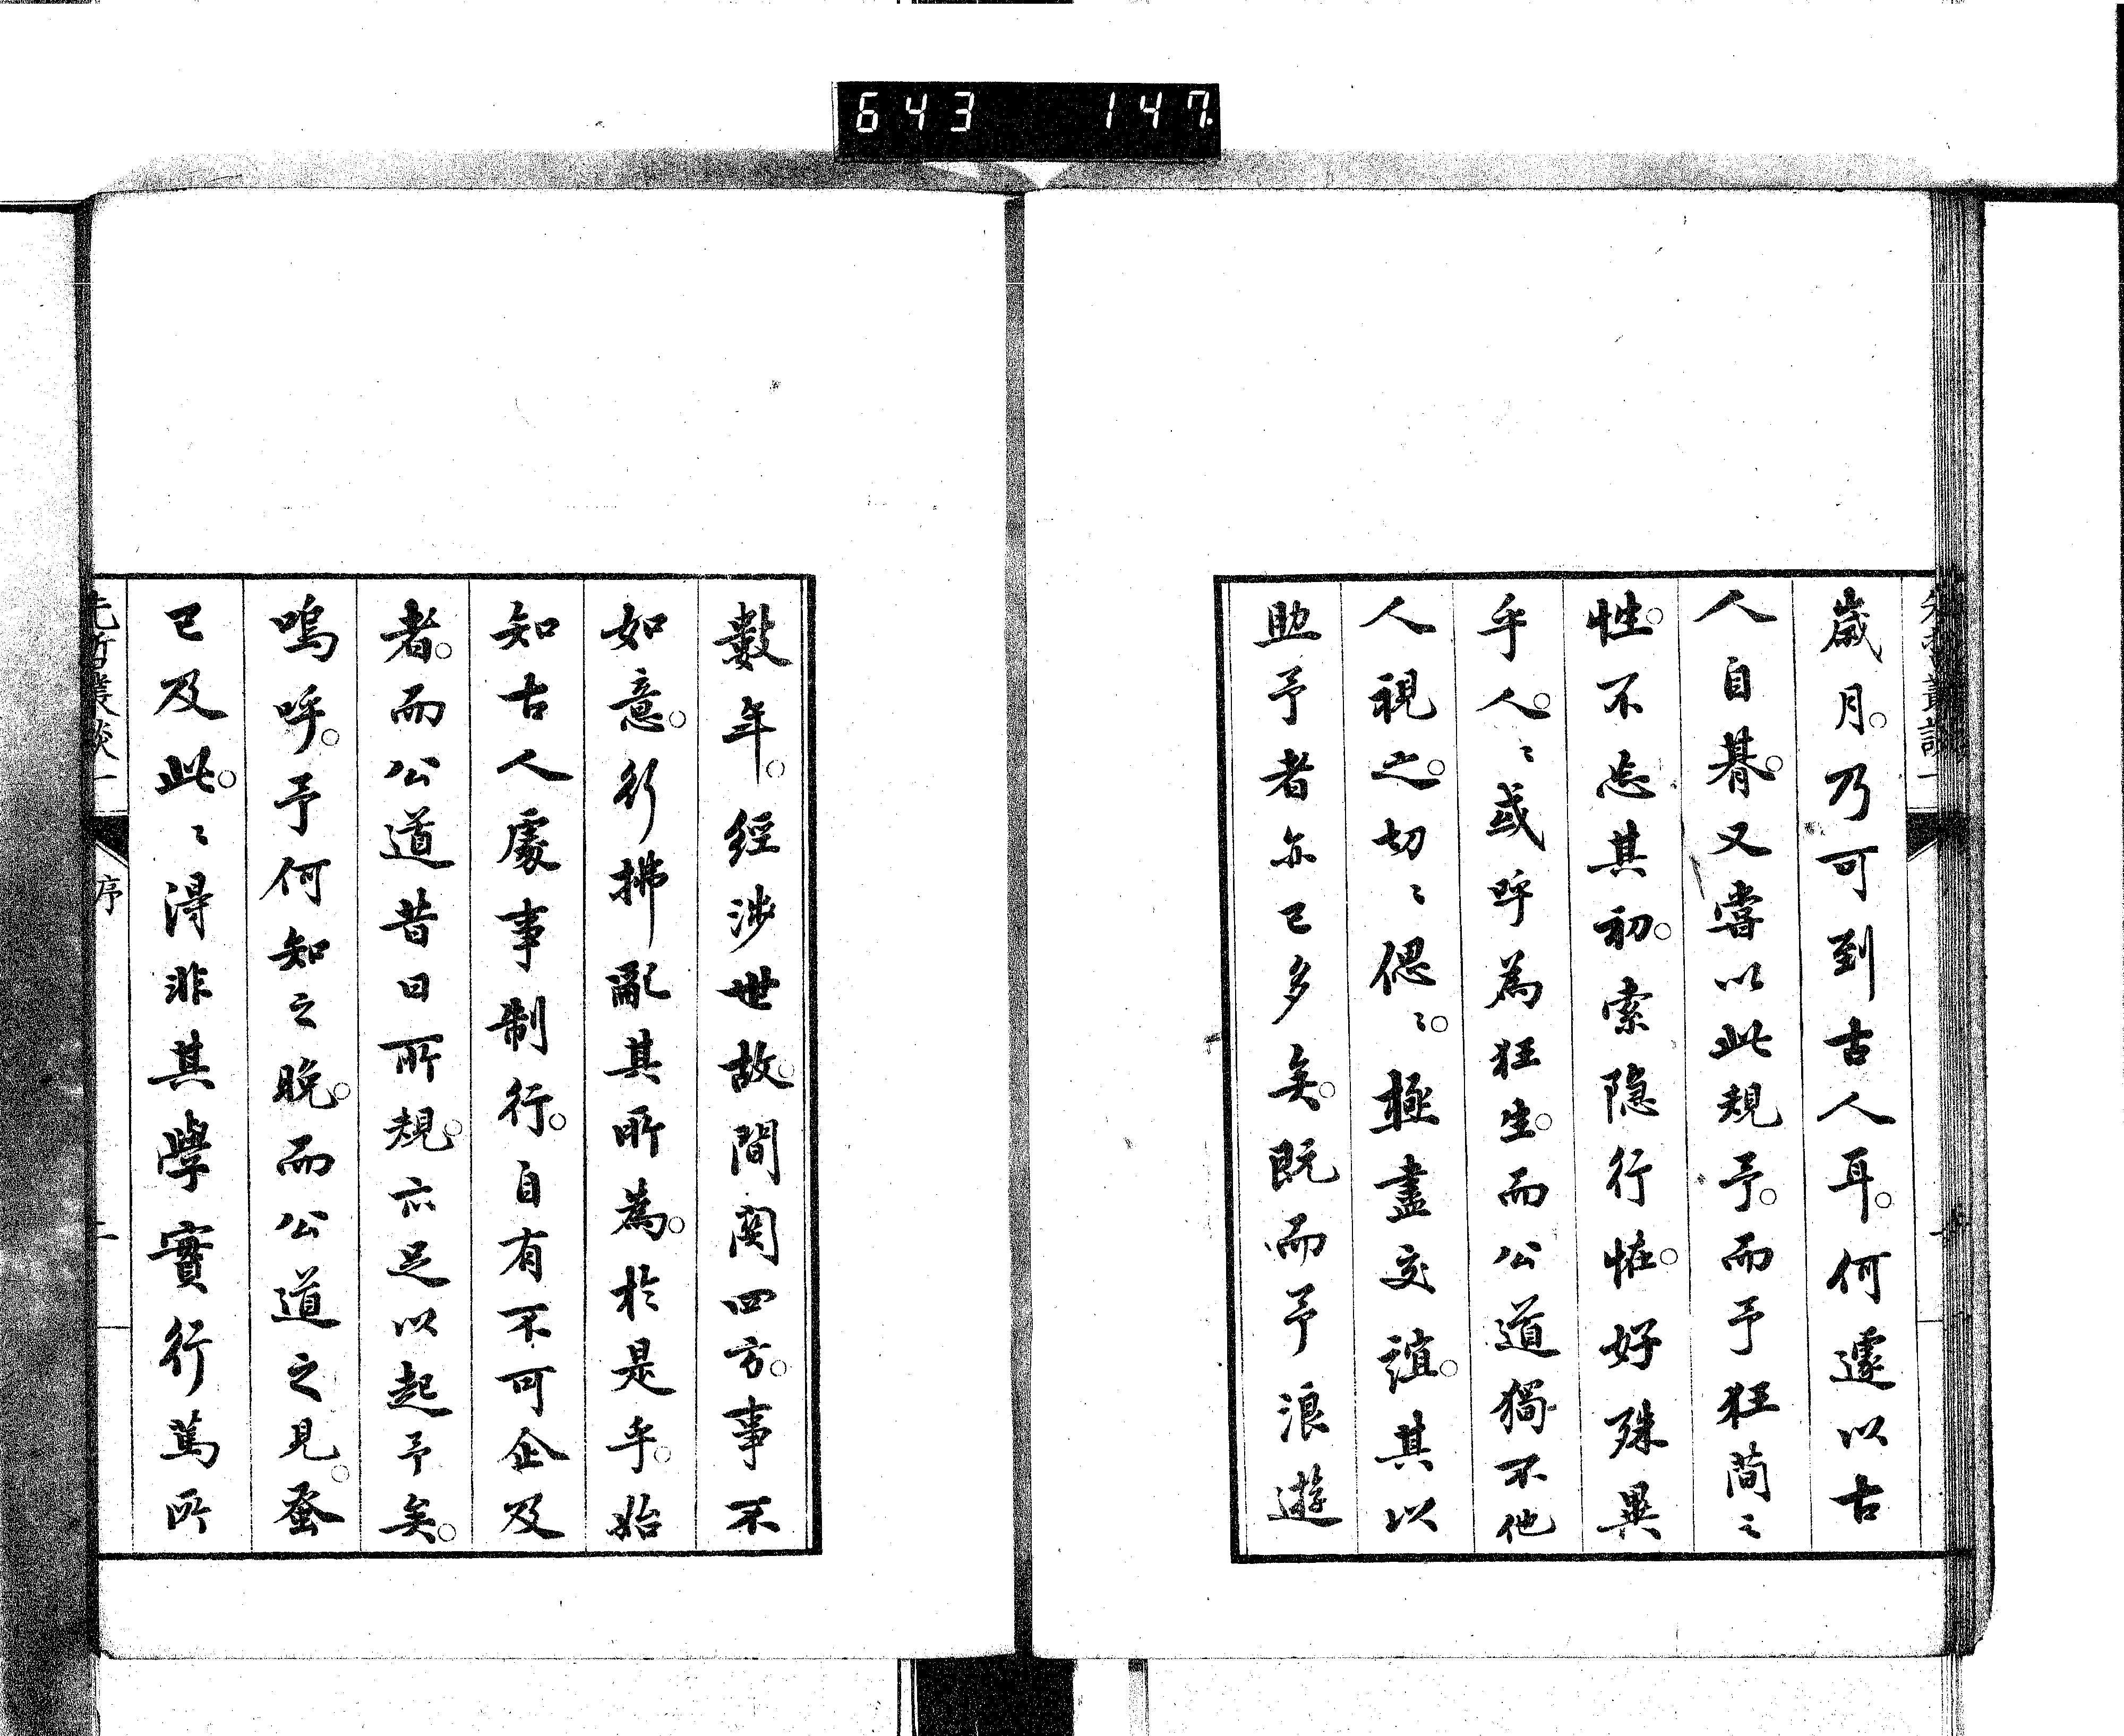 643 147
歳月。乃可到古人耳。何遽以古
人自朞。又嘗以此規予。而予狂簡之
性。不忘其初。索隐行恠。好殊異
乎人。〻或呼為狂生。而公道獨不他
人視之。切〻偲〻。極盡交誼。其以
助予者亦已多矣。既而予浪遊
數年。經涉世故。間関四方。事不
如意。行拂亂其所為。於是乎。始
知古人處事制行。自有不可企及
者。而公道昔日所規。亦足以起予矣。
嗚呼。予何知之晚。而公道之見。蚤
已及此。〻得非其學實行篤所
先哲叢談一
序